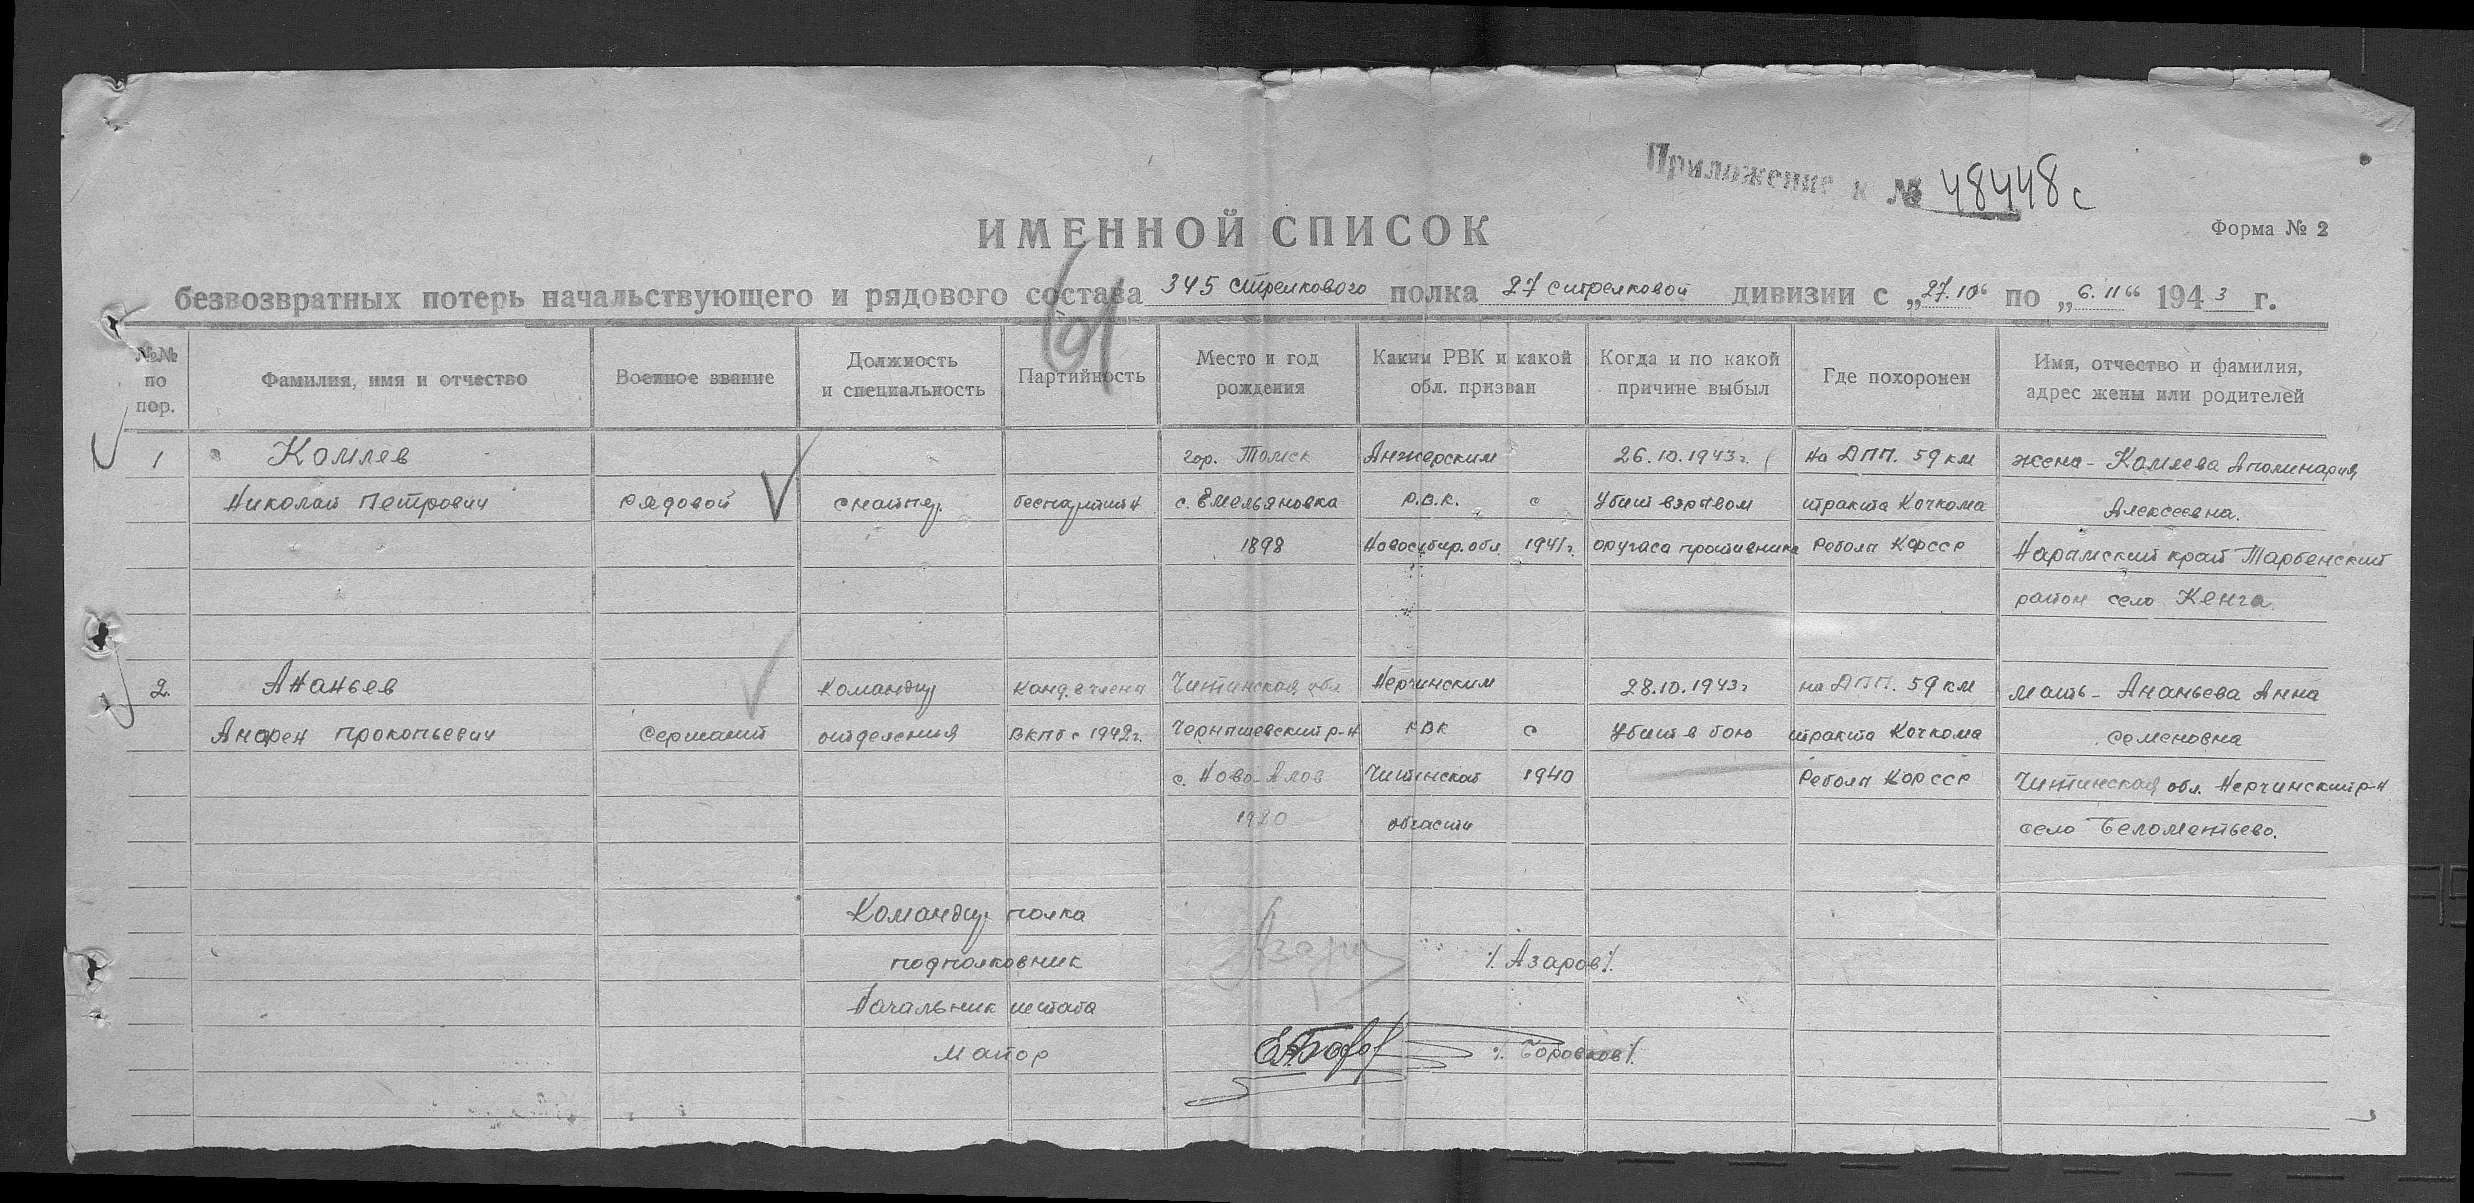 Приложение к № 48448с
ИМЕННОЙ СПИСОК
Форма № 2
безвозвратных потерь начальствующего и рядового состава 345 стрелкового полка 27 стрелковой дивизии с „27.10“ по „6.11“ 1943 г.
№№ по пор.
Фамилия, имя и отчество
Военное звание
Должность и специальность
Партийность
Место и год рождения
Каким РВК и какой обл. призван
Когда и по какой причине выбыл
Где похоронен
Имя, отчество и фамилия, адрес жены или родителей
1 Комлев гор. Томск Анжерским 26.10.1943г. на ДПП. 59 км жена - Комлева Аполинария
Николай Петрович рядовой снайпер беспартийн с. Емельяновка Р.В.К. с Убит взрывом тракта Кочкома Алексеевна.
1898 Новосибир. обл 1941г. фугаса противника Ребола КФССР Нарымский край Парбенский
район село Кенга
2. Ананьев Командир Канд. в члены Читинская обл Нерчинским 28.10.1943г на ДПП. 59 км мать - Ананьева Анна
Андрей Прокопьевич Сержант отделения ВКПб с 1942г. Чернышевский р-н РВК с Убит в бою тракта Кочкома Семеновна
с. Ново-Алов Читинской 1940 Ребола КФССР Читинская обл. Нерчинский р-н
1920 области село Беломентьево.
Командир полка
подполковник /Азаров/.
Начальник штаба
майор /Боровков/.